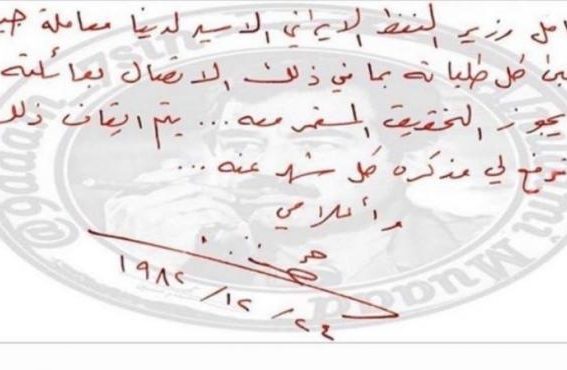 امل وزير النفط الايراني الاسير لدينا معاملة جيد
بى كل طلباته بما في ذلك الاتصال بعائلته
يجوز التحقيق المستمر معه ... يتم ايقاف ذلك
ترفع لي مذكرة كل شهر عنه ...
وأعلامي
١٩٨٢/١٢/٢٤